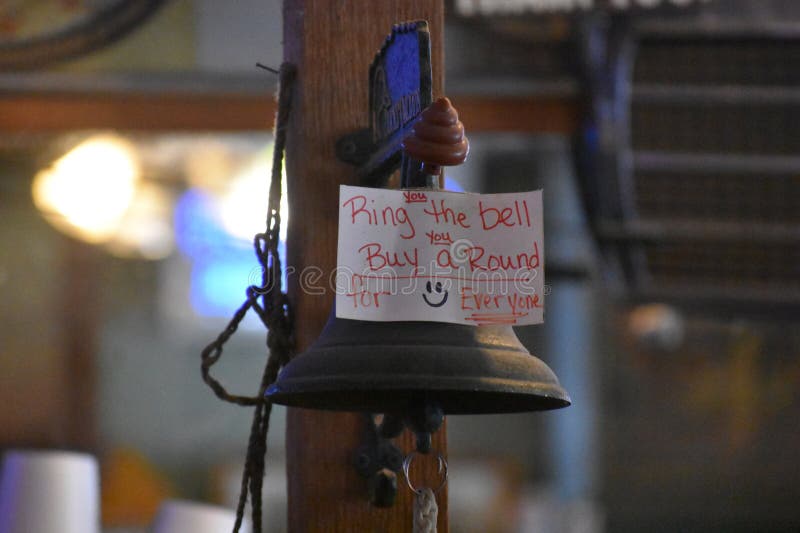 you
Ring the bell
you
Buy a Round
for Everyone